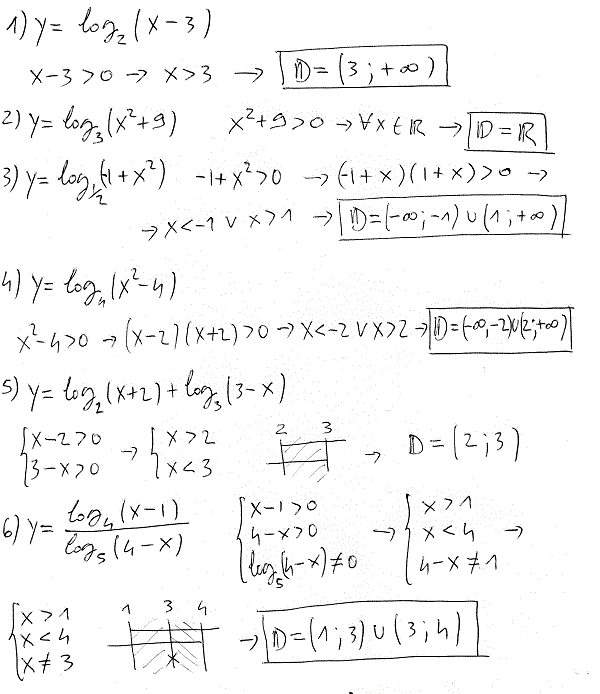 1) y = log₂(x-3)
x-3>0 → x>3 → D=(3;+∞)
2) y = log₃(x²+9) x²+9>0 → ∀x∈ℝ → D=ℝ
3) y = log₁/₂(-1+x²) -1+x²>0 → (-1+x)(1+x)>0 →
→ x<-1 ∨ x>1 → D=(-∞;-1)∪(1;+∞)
4) y = log₄(x²-4)
x²-4>0 → (x-2)(x+2)>0 → x<-2 ∨ x>2 → D=(-∞,-2)∪(2;+∞)
5) y = log₂(x+2)+log₃(3-x)
{x-2>0 → {x>2 2 3 → D=(2;3)
{3-x>0 {x<3
6) y = log₄(x-1) / log₅(4-x)
{x-1>0 {x>1
{4-x>0 → {x<4 →
{log₅(4-x)≠0 {4-x≠1
{x>1 1 3 4
{x<4 → D=(1;3)∪(3;4)
{x≠3 x